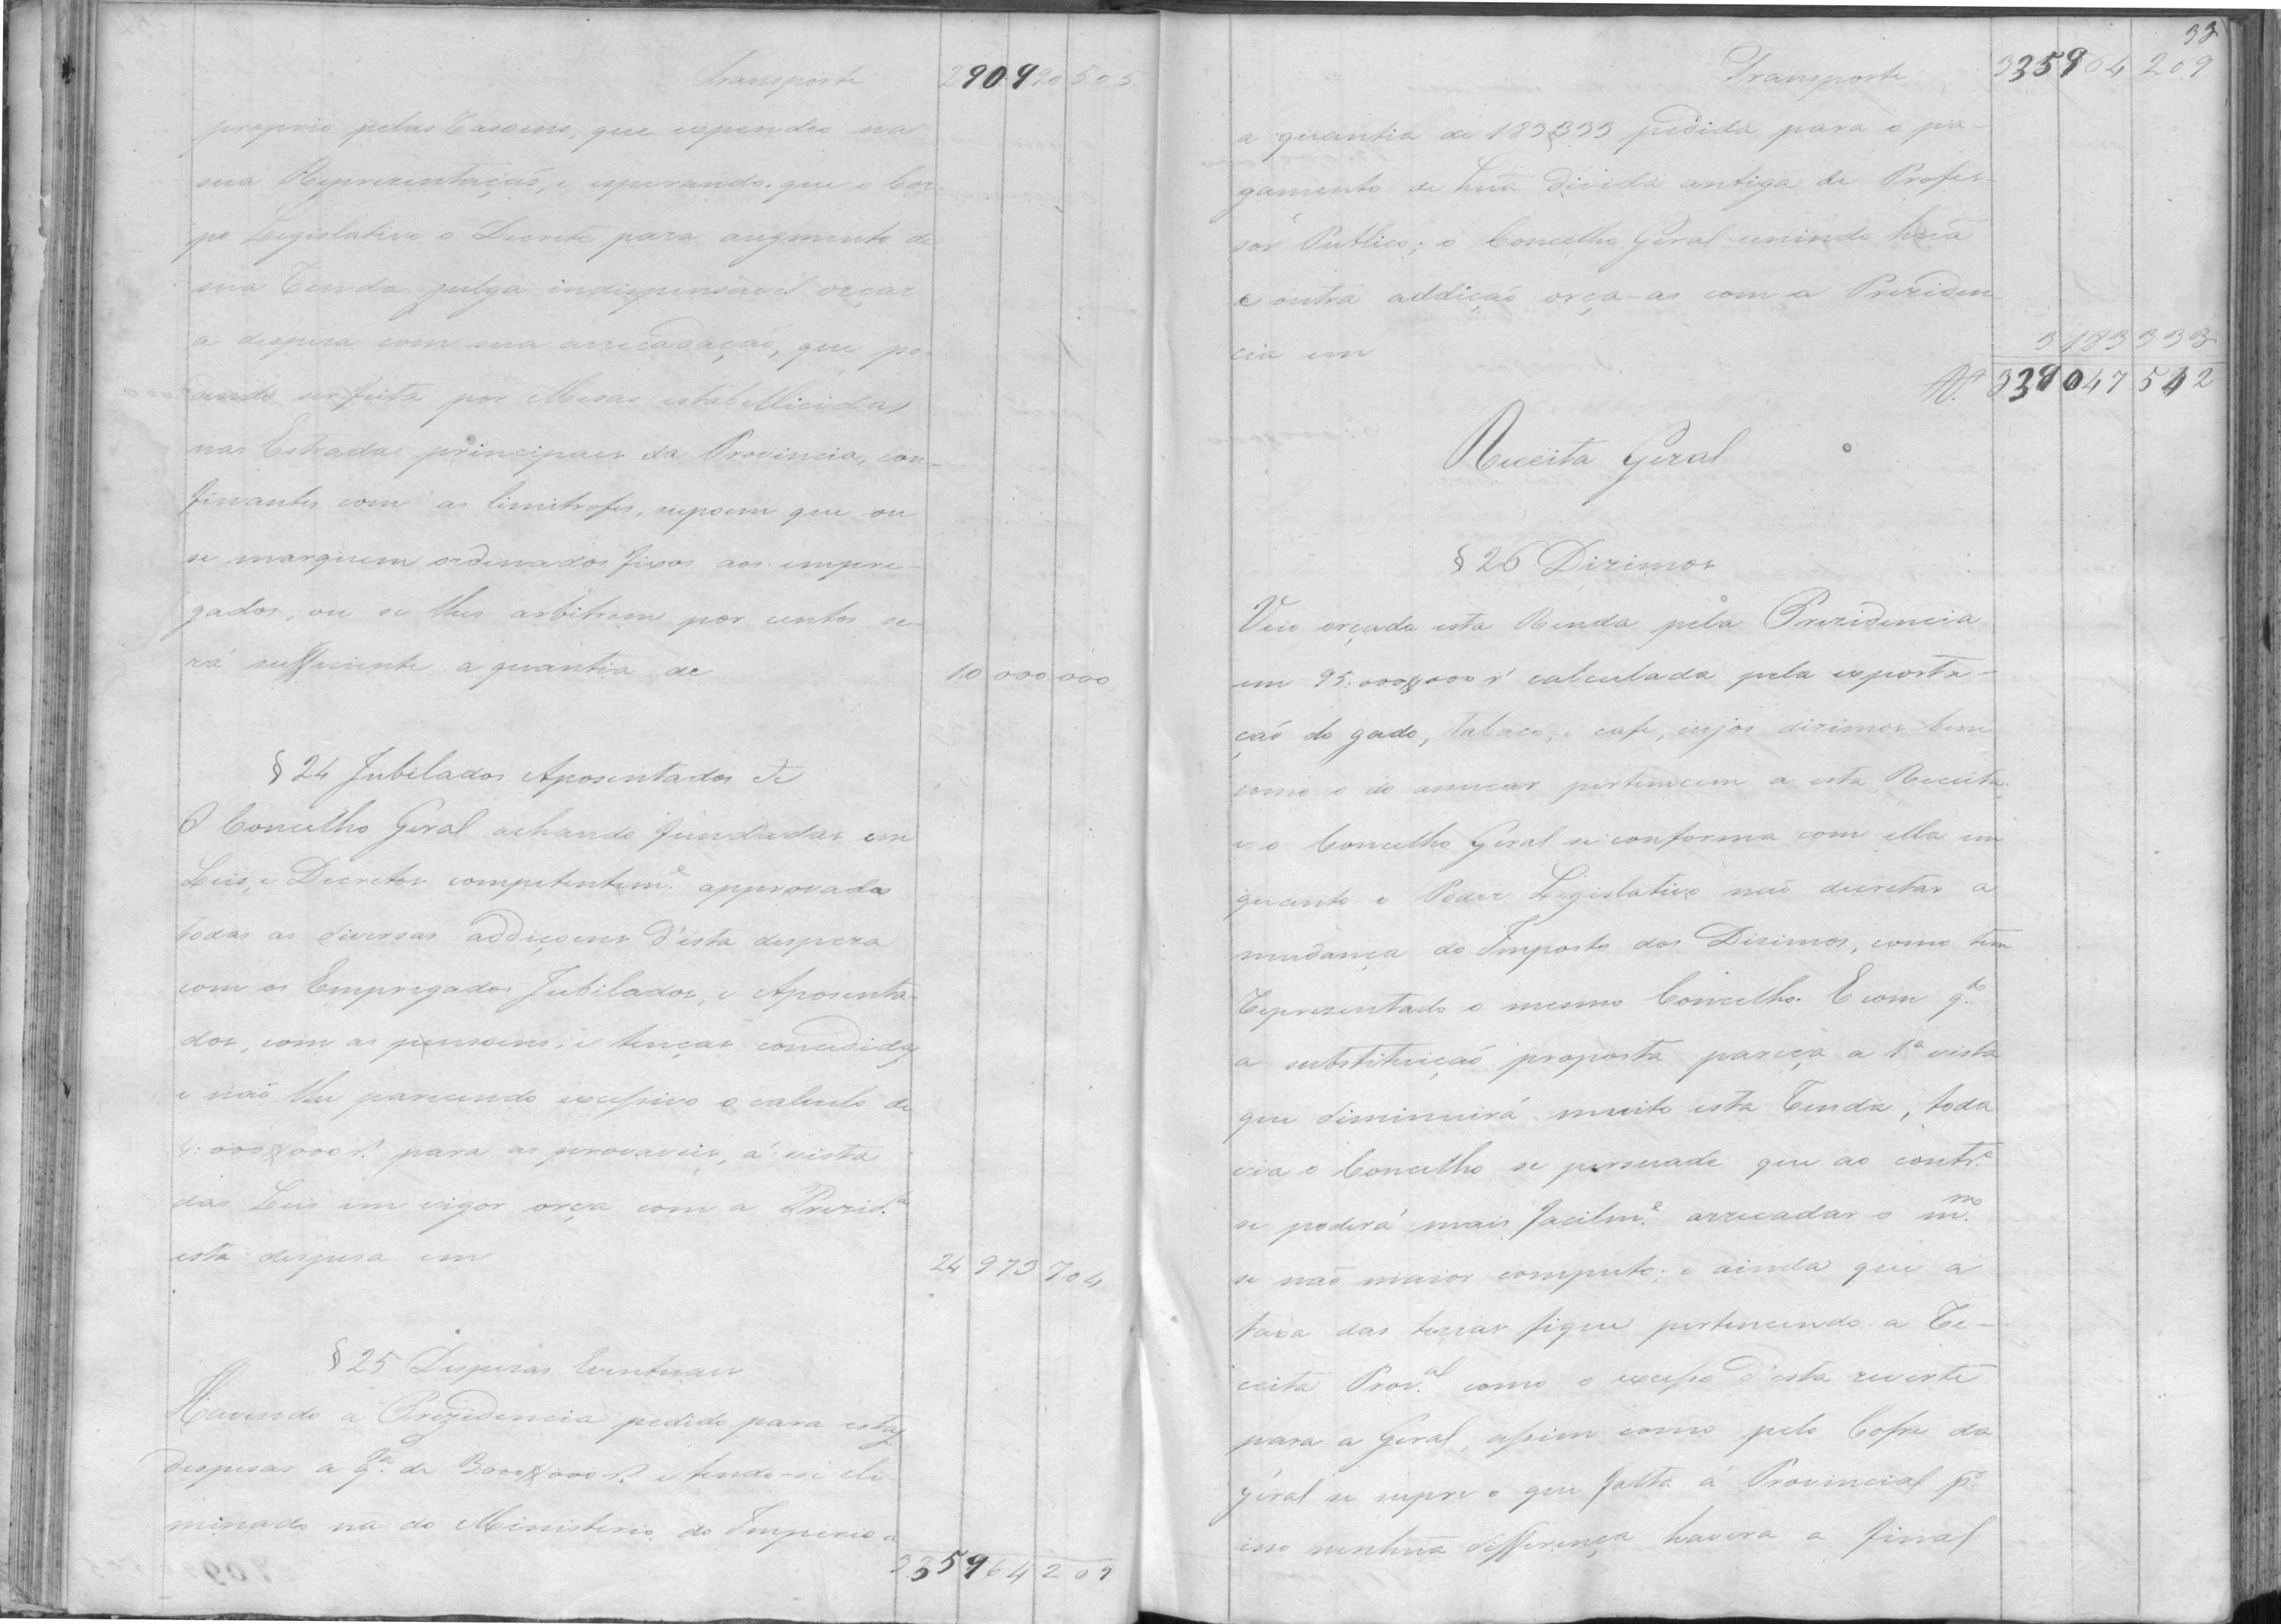 Transporte 290920505
proprio pelas Rasoens, que expendeo na
sua Reprezentação, e esperando que o Cor-
po Legislativo o Decrete para augmento de
sua Renda julga indispensavel orçar
a despesa com sua arrecadação, que po-
dendo ser feita por Mesas estabellicidas
nas Estradas principaes da Provincia, con-
finantes com as limitrofes, supoem que ou
se marquem ordenados fixos aos empre-
gados, ou se lhes arbitrem por centos se-
rá sufficiente a quantia de 10 000 000
§ 24 Jubilados Aposentados &
O Concelho Geral achando fundadas em
Leis, e Decretos competentem.e approvados
todas as diversas addiçoens d'esta despeza
com os Empregados Jubilados, e Aposenta-
dos, com as pensoens, e tenças concedidas
e não lhe parecendo excessivo o calculo de
4:000$000 r.s para as provaveis, á vista
das Leis em vigor orça com a Prezid.a
esta despesa em 24 973 704
§ 25 Despezas Eventuaes
Havendo a Prezidencia pedido para estas
despesas a q.a de 3:000$000 r.s e tendo-se eli-
minado na do Ministerio do Imperio a
335964209
33
Transporte 335964209
a quantia de 183$333 pedida para o pa-
gamento de huã divida antiga de Profes-
sor Publico; o Concelho Geral unindo huã
e outra addição orça-as com a Preziden
cia em 3 183 333
R.s 339047542
Receita Geral
§ 26 Dizimos
Veio orçada esta Renda pela Prezidencia
em 95:000$000 r.s calculada pela exporta-
ção do gado, tabaco, e cafe, cujos dizimos bem
como o do assucar pertencem a esta Receita
e o Concelho Geral se conforma com ella em
quanto o Poder Legislativo não decretar a
mudança do Imposto dos Dizimos, como tem
Reprezentado o mesmo Concelho. E com q.to
a substituição proposta pareça a 1.a vista
que diminuirá muito esta Renda, toda
via o Concelho se persuade que ao contr.o
se poderá mais facilm.e arrecadar o m.mo
se não maior computo; e ainda que a
taxa das terras fique pertencendo a Re-
ceita Prov.al como o excesso d'esta reverte
para a Geral, assim como pelo Cofre da
Geral se supre o que falta á Provincial p.r
isso nenhuã differença havera a final